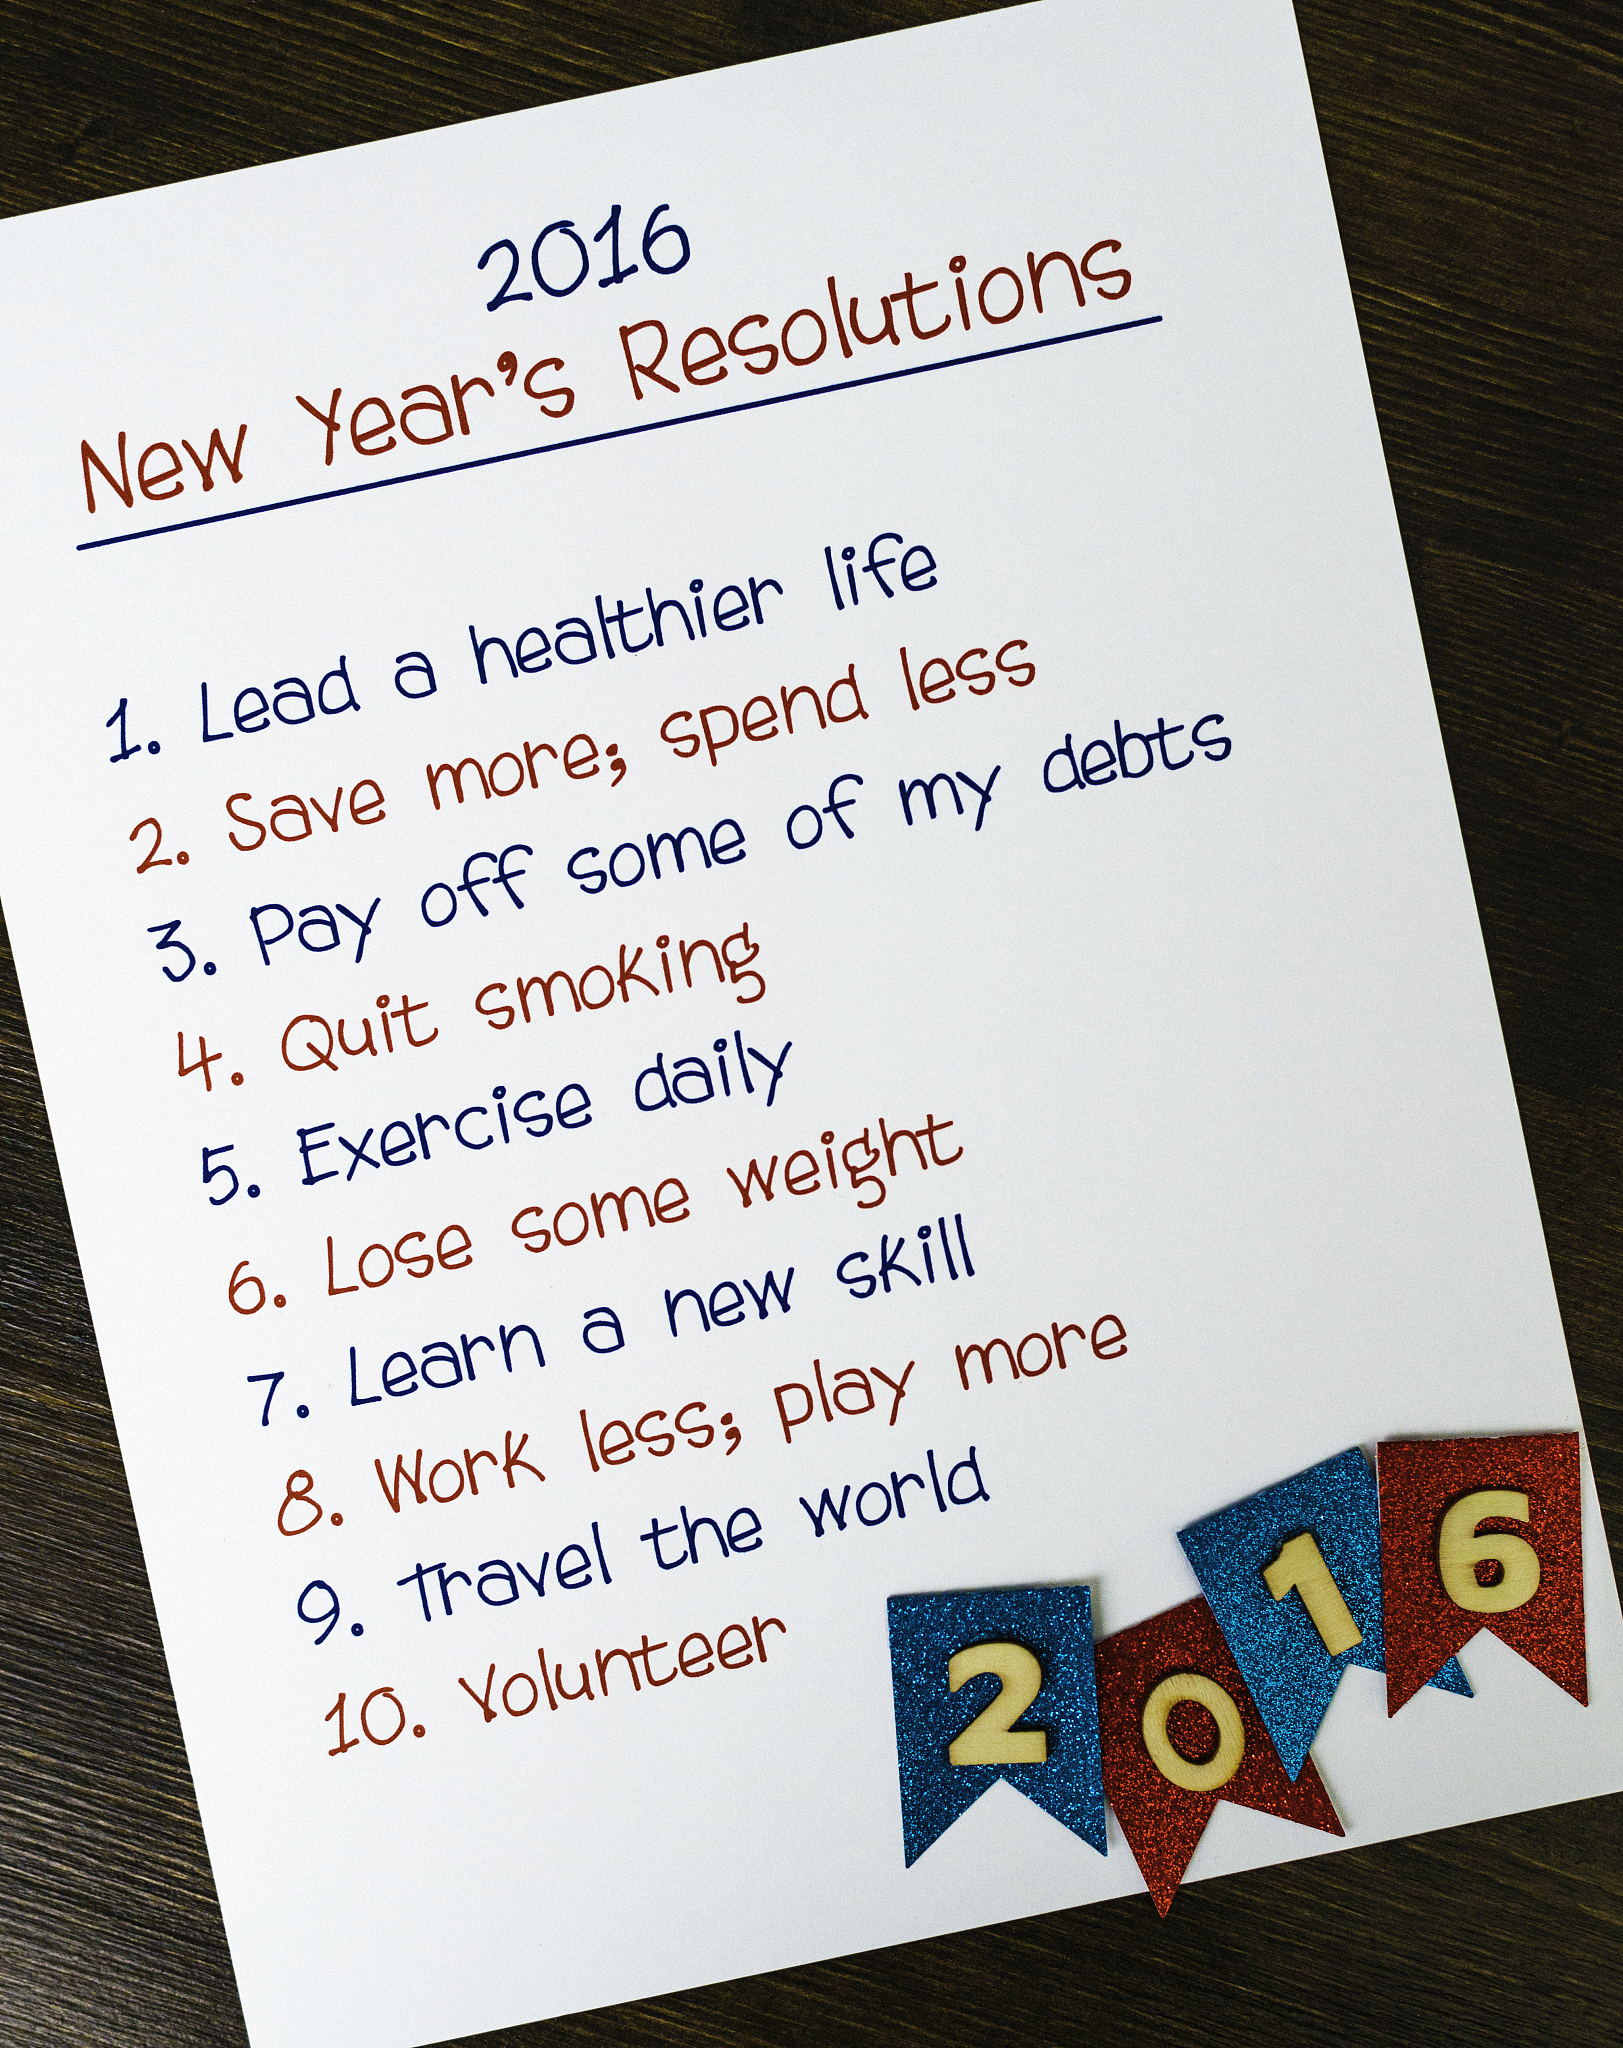 2016
New Year's Resolutions
1. Lead a healthier life
2. Save more; spend less
3. Pay off some of my debts
4. Quit smoking
5. Exercise daily
6. Lose some weight
7. Learn a new skill
8. Work less; play more
9. Travel the world
10. Volunteer
2016